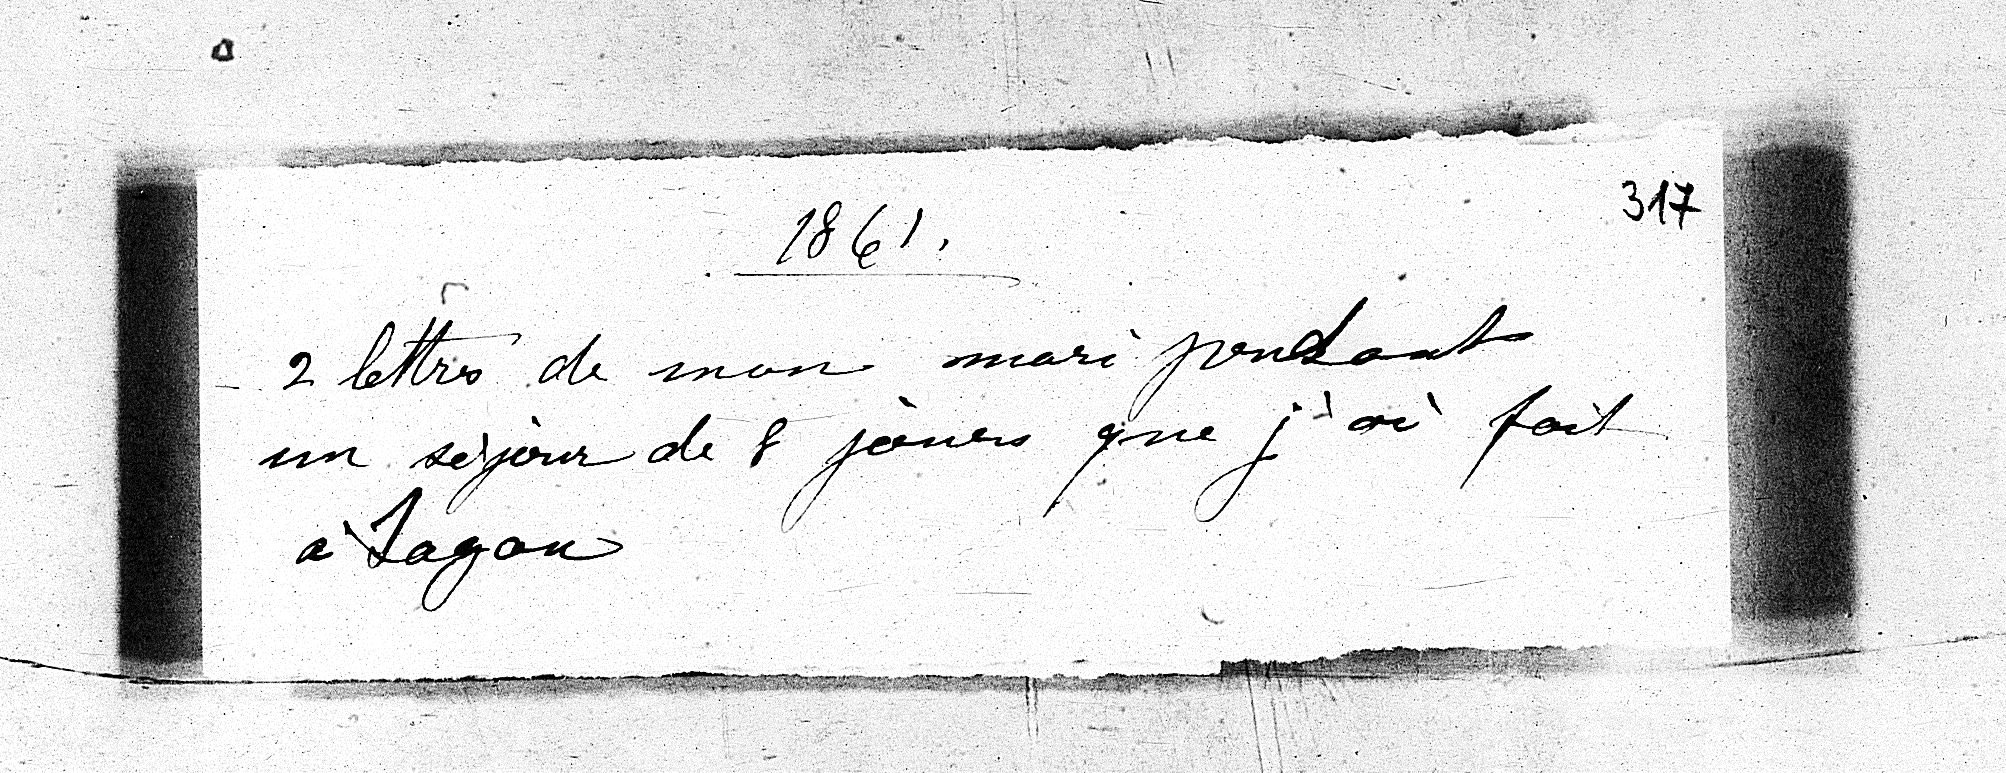 317
1861.
2 lettres de mon mari pendant
un séjour de 8 jours que j'ai fait
à Sagan